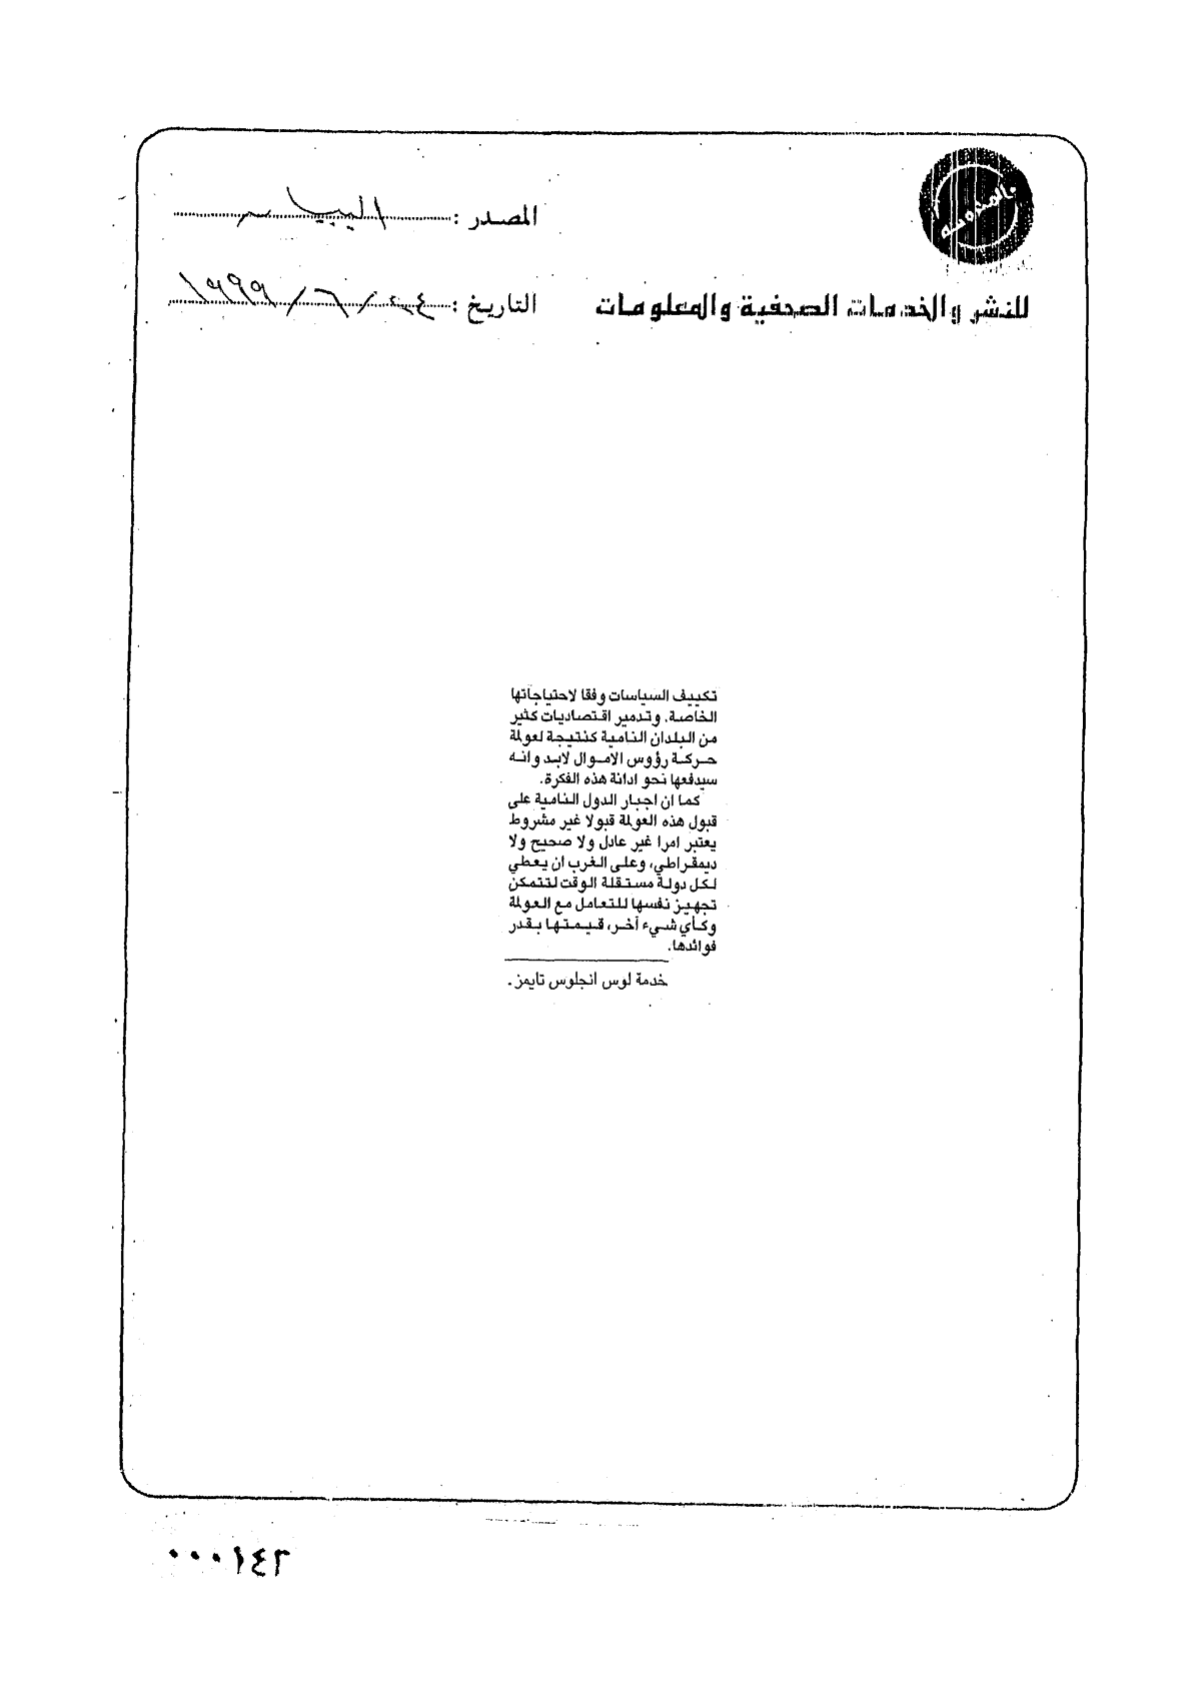 المصدر : البيان
للنشر والخدمات الصحفية والمعلومات
التاريخ : ٢٤ / ٦ / ١٩٩٩
تكييف السياسات وفقا لاحتياجاتها
الخاصة. وتدمير اقتصاديات كثير
من البلدان النامية كنتيجة لعولمة
حركة رؤوس الاموال لابد وانه
سيدفعها نحو ادانة هذه الفكرة.
كما ان اجبار الدول النامية على
قبول هذه العولمة قبولا غير مشروط
يعتبر امرا غير عادل ولا صحيح ولا
ديمقراطي، وعلى الغرب ان يعطي
لكل دولة مستقلة الوقت لتتمكن
تجهيز نفسها للتعامل مع العولمة
وكأي شيء أخر، قيمتها بقدر
فوائدها.
خدمة لوس انجلوس تايمز.
٠٠٠١٤٢